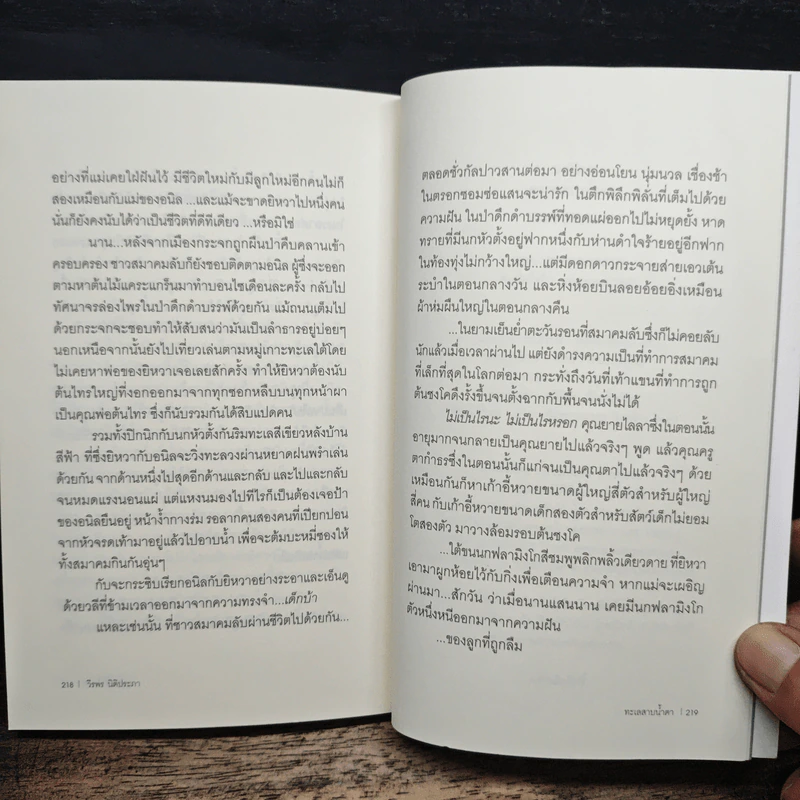 อย่างที่แม่เคยใฝ่ฝันไว้ มีชีวิตใหม่กับมีลูกใหม่อีกคนไม่ก็
สองเหมือนกับแม่ของอนิล ...และแม้จะขาดยิหวาไปหนึ่งคน
นั่นก็ยังคงนับได้ว่าเป็นชีวิตที่ดีทีเดียว ...หรือมิใช่
นาน...หลังจากเมืองกระจกถูกผืนป่าคืบคลานเข้า
ครอบครอง ชาวสมาคมลับก็ยังชอบติดตามอนิล ผู้ซึ่งจะออก
ตามหาต้นไม้แคระแกร็นมาทำบอนไซเดือนละครั้ง กลับไป
ทัศนาจรล่องไพรในป่าดึกดำบรรพ์ด้วยกัน แม้ถนนเต็มไป
ด้วยกระจกจะชอบทำให้สับสนว่ามันเป็นลำธารอยู่บ่อยๆ
นอกเหนือจากนั้นยังไปเที่ยวเล่นตามหมู่เกาะทะเลใต้โดย
ไม่เคยหาพ่อของยิหวาเจอเลยสักครั้ง ทำให้ยิหวาต้องนับ
ต้นไทรใหญ่ที่งอกออกมาจากทุกซอกหลืบบนทุกหน้าผา
เป็นคุณพ่อต้นไทร ซึ่งก็นับรวมกันได้สิบแปดคน
รวมทั้งปิกนิกกับนกหัวตั้งกันริมทะเลสีเขียวหลังบ้าน
สีฟ้า ที่ซึ่งยิหวากับอนิลจะวิ่งทะลวงผ่านหยาดฝนพรำเล่น
ด้วยกัน จากด้านหนึ่งไปสุดอีกด้านและกลับ และไปและกลับ
จนหมดแรงนอนแผ่ แต่แหงนมองไปทีไรก็เป็นต้องเจอป้า
ของอนิลยืนอยู่ หน้าง้ำกางร่ม รอลากคนสองคนที่เปียกปอน
จากหัวจรดเท้ามาอยู่แล้วไปอาบน้ำ เพื่อจะต้มบะหมี่ซองให้
ทั้งสมาคมกินกันอุ่นๆ
กับจะกระซิบเรียกอนิลกับยิหวาอย่างระอาและเอ็นดู
ด้วยวลีที่ข้ามเวลาออกมาจากความทรงจำ...เด็กบ้า
แหละเช่นนั้น ที่ชาวสมาคมลับผ่านชีวิตไปด้วยกัน...
218 | วีรพร นิติประภา
ตลอดชั่วกัลปาวสานต่อมา อย่างอ่อนโยน นุ่มนวล เชื่องช้า
ในตรอกซอมซ่อแสนจะน่ารัก ในตึกพิลึกพิลั่นที่เต็มไปด้วย
ความฝัน ในป่าดึกดำบรรพ์ที่ทอดแผ่ออกไปไม่หยุดยั้ง หาด
ทรายที่มีนกหัวตั้งอยู่ฟากหนึ่งกับห่านดำใจร้ายอยู่อีกฟาก
ในท้องทุ่งไม่กว้างใหญ่...แต่มีดอกดาวกระจายส่ายเอวเต้น
ระบำในตอนกลางวัน และหิ่งห้อยบินลอยอ้อยอิ่งเหมือน
ผ้าห่มผืนใหญ่ในตอนกลางคืน
...ในยามเย็นย่ำตะวันรอนที่สมาคมลับซึ่งก็ไม่ค่อยลับ
นักแล้วเมื่อเวลาผ่านไป แต่ยังดำรงความเป็นที่ทำการสมาคม
ที่เล็กที่สุดในโลกต่อมา กระทั่งถึงวันที่เท้าแขนที่ทำการถูก
ต้นชงโคดึงรั้งขึ้นจนตั้งฉากกับพื้นจนนั่งไม่ได้
ไม่เป็นไรนะ ไม่เป็นไรหรอก คุณยายไลลาซึ่งในตอนนั้น
อายุมากจนกลายเป็นคุณยายไปแล้วจริงๆ พูด แล้วคุณครู
ตากำธรซึ่งในตอนนั้นก็แก่จนเป็นคุณตาไปแล้วจริงๆ ด้วย
เหมือนกันก็หาเก้าอี้หวายขนาดผู้ใหญ่สี่ตัวสำหรับผู้ใหญ่
สี่คน กับเก้าอี้หวายขนาดเด็กสองตัวสำหรับสัตว์เด็กไม่ยอม
โตสองตัว มาวางล้อมรอบต้นชงโค
...ใต้ขนนกฟลามิงโกสีชมพูพลิกพลิ้วเดียวดาย ที่ยิหวา
เอามาผูกห้อยไว้กับกิ่งเพื่อเตือนความจำ หากแม่จะเผอิญ
ผ่านมา...สักวัน ว่าเมื่อนานแสนนาน เคยมีนกฟลามิงโก
ตัวหนึ่งหนีออกมาจากความฝัน
...ของลูกที่ถูกลืม
ทะเลสาบน้ำตา | 219